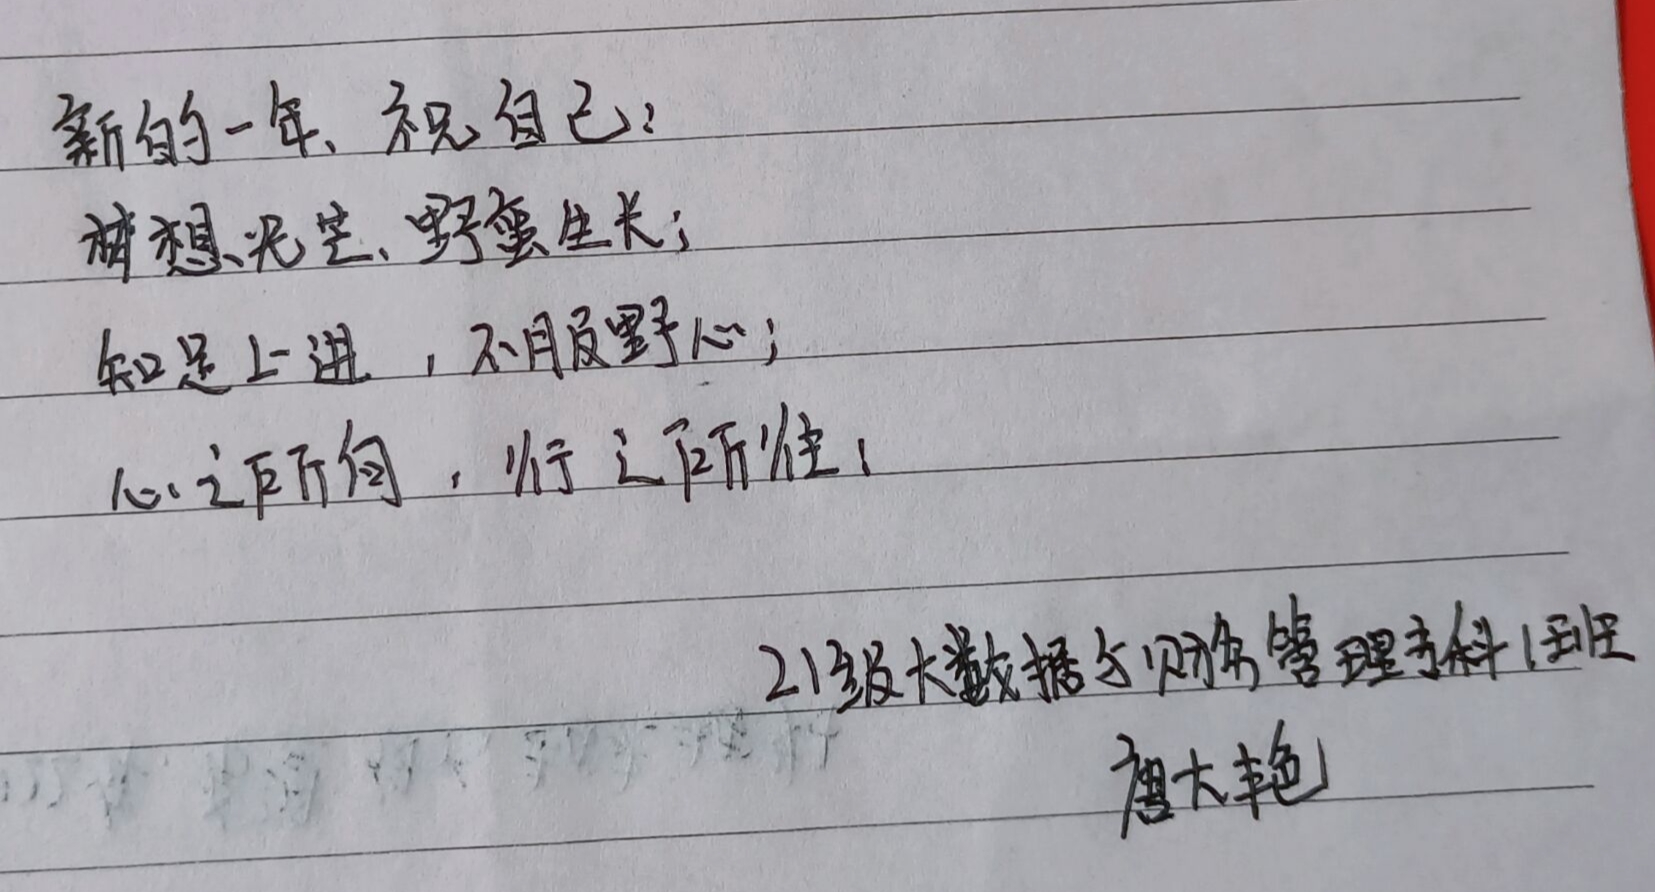 新的一年、祝自己：
梦想光芒、野蛮生长；
知足上进，不服野心；
心之所向，行之所往；
21级大数据与财务管理专科1班
唐大艳